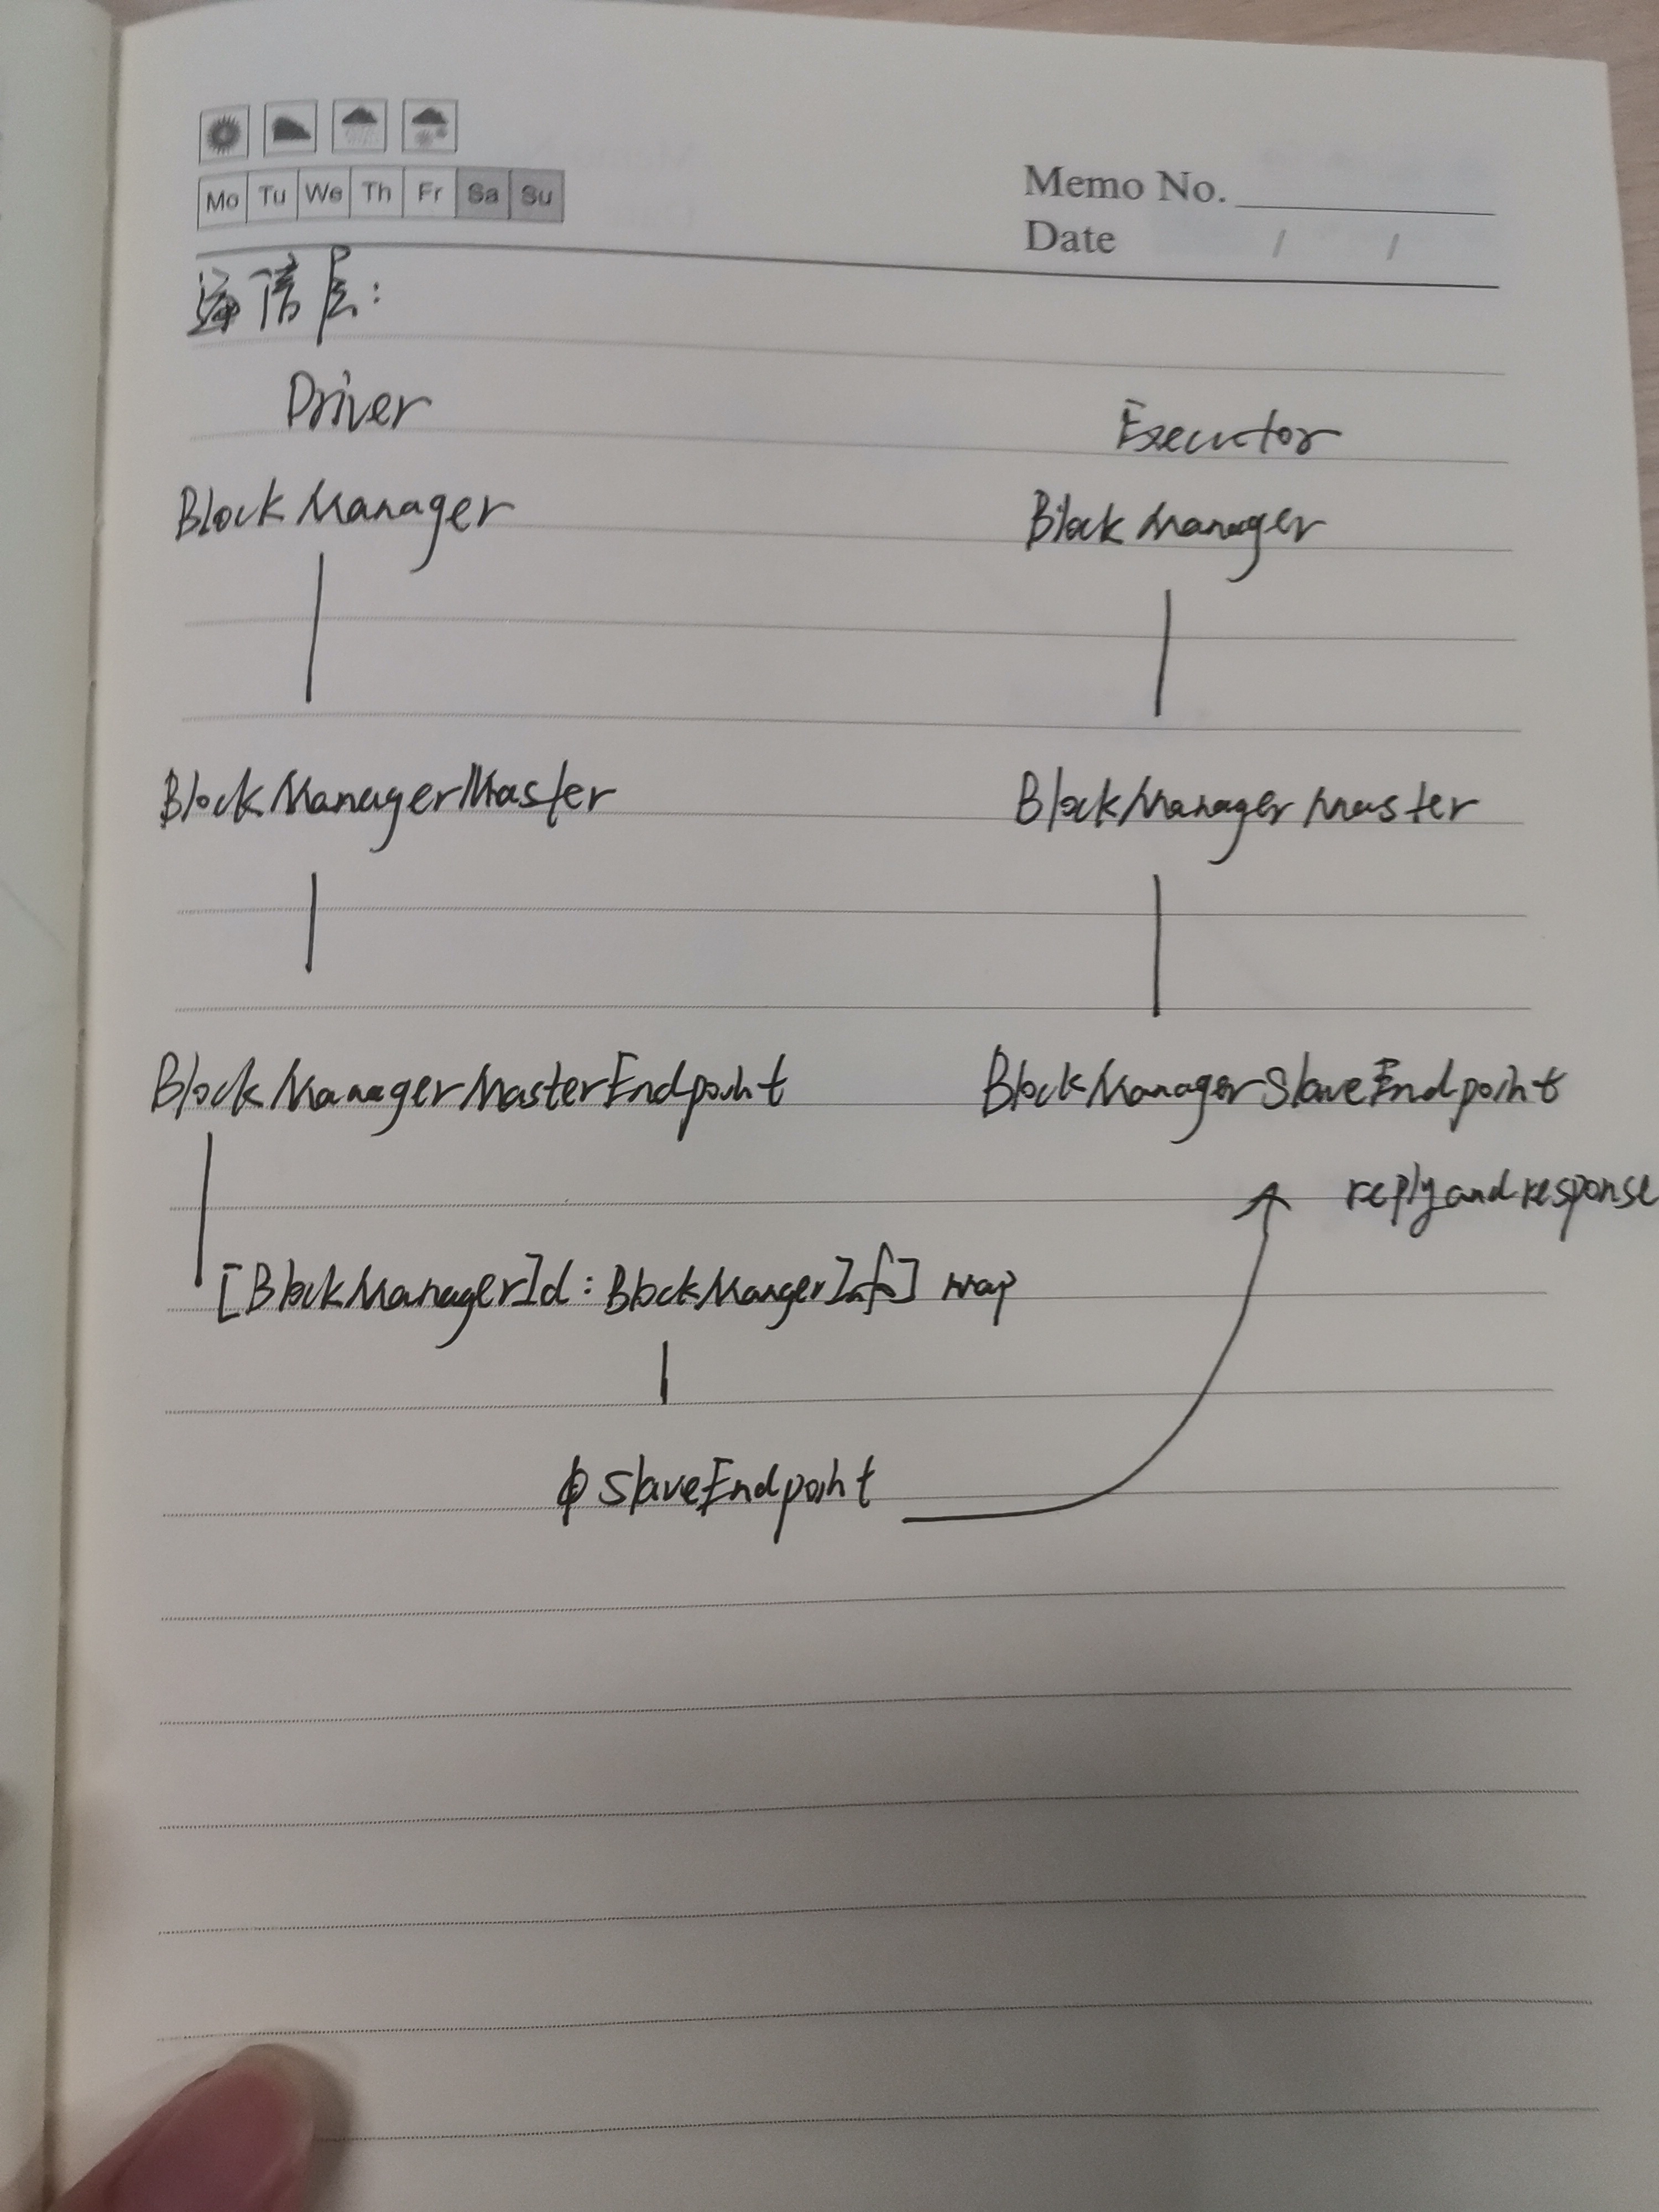 Mo Tu We Th Fr Sa Su
Memo No.
Date / /
通信层:
Driver
Executor
BlockManager
BlockManager
BlockManagerMaster
BlockManagerMaster
BlockManagerMasterEndpoint
BlockManagerSlaveEndpoint
replyandresponse
[BlockManagerId:BlockMangerInfo] map
SlaveEndpoint